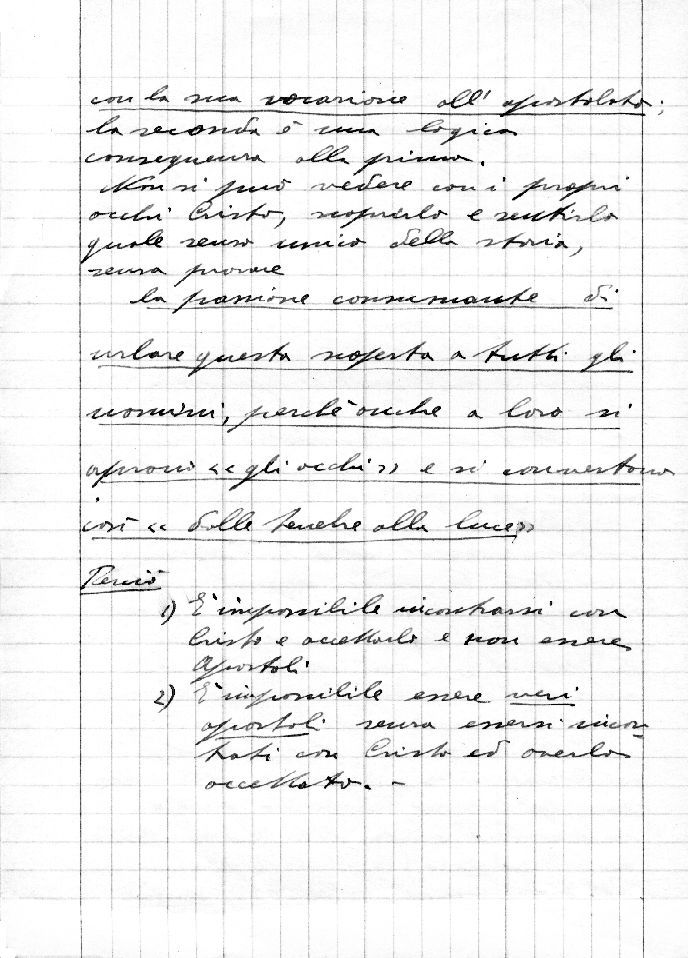 con la sua vocazione all'apostolato;
la seconda è una logica
conseguenza alla prima.
Non si può vedere con i propri
occhi Cristo, scoprirlo e sentirlo
quale senso unico della storia,
senza provare
la passione consumante di
urlare questa scoperta a tutti gli
uomini, perchè anche a loro si
aprono «gli occhi» e si convertono
così «dalle tenebre alla luce»
Perciò
1) È impossibile incontrarsi con
Cristo e accettarlo e non essere
Apostoli
2) È impossibile essere veri
apostoli senza essersi incon-
trati con Cristo ed averlo
accettato. -